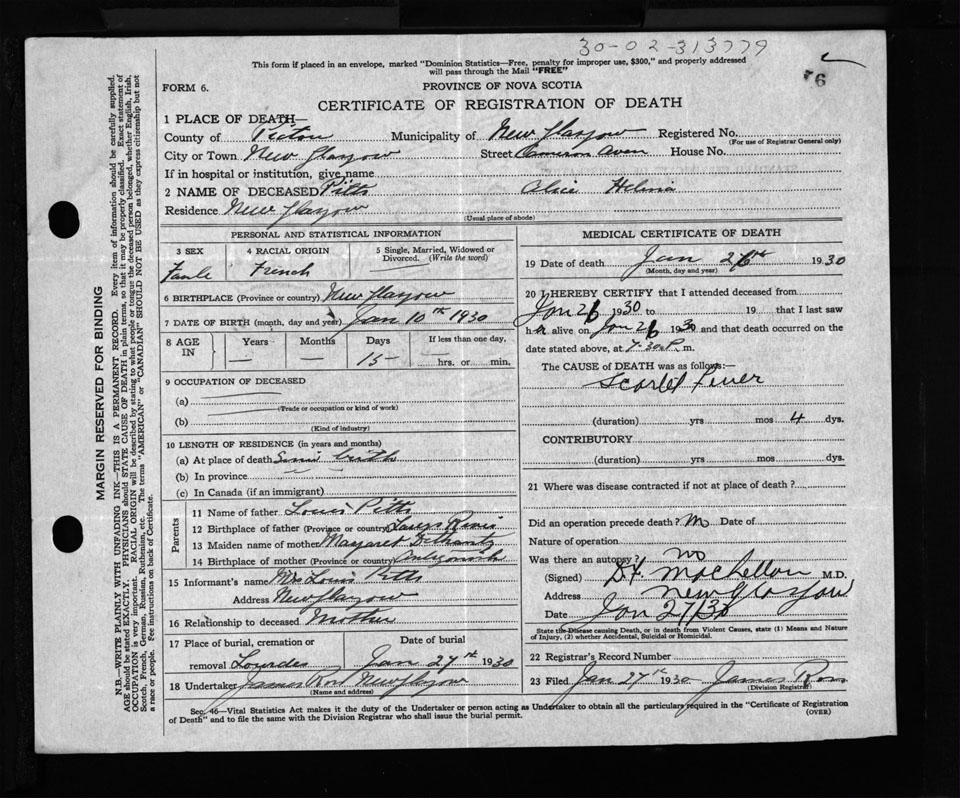 30-02-313779
This form if placed in an envelope, marked "Dominion Statistics—Free, penalty for improper use, $300," and properly addressed
will pass through the Mail "FREE"
76
FORM 6.
PROVINCE OF NOVA SCOTIA
CERTIFICATE OF REGISTRATION OF DEATH
1 PLACE OF DEATH—
County of Pictou Municipality of New Glasgow Registered No.
(For use of Registrar General only)
City or Town New Glasgow Street Cameron Aven House No.
If in hospital or institution, give name
2 NAME OF DECEASED Pitts Alice
Residence New Glasgow
(Usual place of abode)
PERSONAL AND STATISTICAL INFORMATION
3 SEX 4 RACIAL ORIGIN 5 Single, Married, Widowed or Divorced. (Write the word)
French
6 BIRTHPLACE (Province or country) New Glasgow
7 DATE OF BIRTH (month, day and year) Jan 10th 1930
8 AGE IN Years Months Days If less than one day,
— — 15 — hrs. or min.
9 OCCUPATION OF DECEASED
(a)
(Trade or occupation or kind of work)
(b)
(Kind of industry)
10 LENGTH OF RESIDENCE (in years and months)
(a) At place of death Since birth
(b) In province
(c) In Canada (if an immigrant)
Parents
11 Name of father Louis Pitts
12 Birthplace of father (Province or country)
13 Maiden name of mother Margaret
14 Birthplace of mother (Province or country)
15 Informant's name Mrs Louis Pitts
Address New Glasgow
16 Relationship to deceased Mother
17 Place of burial, cremation or Date of burial
removal Lourdes Jan 27th 1930
18 Undertaker James Ross New Glasgow
(Name and address)
MEDICAL CERTIFICATE OF DEATH
19 Date of death Jan 26th 1930
(Month, day and year)
20 I HEREBY CERTIFY that I attended deceased from
Jan 26 1930 to 19 that I last saw
h alive on Jan 26 1930 and that death occurred on
date stated above, at 7.30 P. m.
The CAUSE of DEATH was as follows:—
Scarlet Fever
(duration) yrs mos 4 dys.
CONTRIBUTORY
(duration) yrs mos dys.
21 Where was disease contracted if not at place of death?
Did an operation precede death? No Date of
Nature of operation
Was there an autopsy? no
(Signed) MacLellan M.D.
Address New Glasgow
Date Jan 27/30
State the Disease causing Death, or in death from Violent Causes, state (1) Means and Nature
of Injury, (2) whether Accidental, Suicidal or Homicidal.
22 Registrar's Record Number
23 Filed Jan 27th 1930 James Ross
(Division Registrar)
Sec. 46—Vital Statistics Act makes it the duty of the Undertaker or person acting as Undertaker to obtain all the particulars required in the "Certificate of Registration
of Death" and to file the same with the Division Registrar who shall issue the burial permit.
(OVER)
MARGIN RESERVED FOR BINDING
N.B.—WRITE PLAINLY WITH UNFADING INK—THIS IS A PERMANENT RECORD. Every item of information should be carefully supplied.
AGE should be stated EXACTLY. PHYSICIANS should STATE CAUSE OF DEATH in plain terms, so that it may be properly classified. Exact statement of
OCCUPATION is very important. RACIAL ORIGIN will be described by stating to what people or tongue the deceased person belonged, whether English, Irish,
Scotch, French, German, Russian, Ruthenian, etc. The terms "AMERICAN" or "CANADIAN" SHOULD NOT BE USED as they express citizenship but not
a race or people. See instructions on back of Certificate.